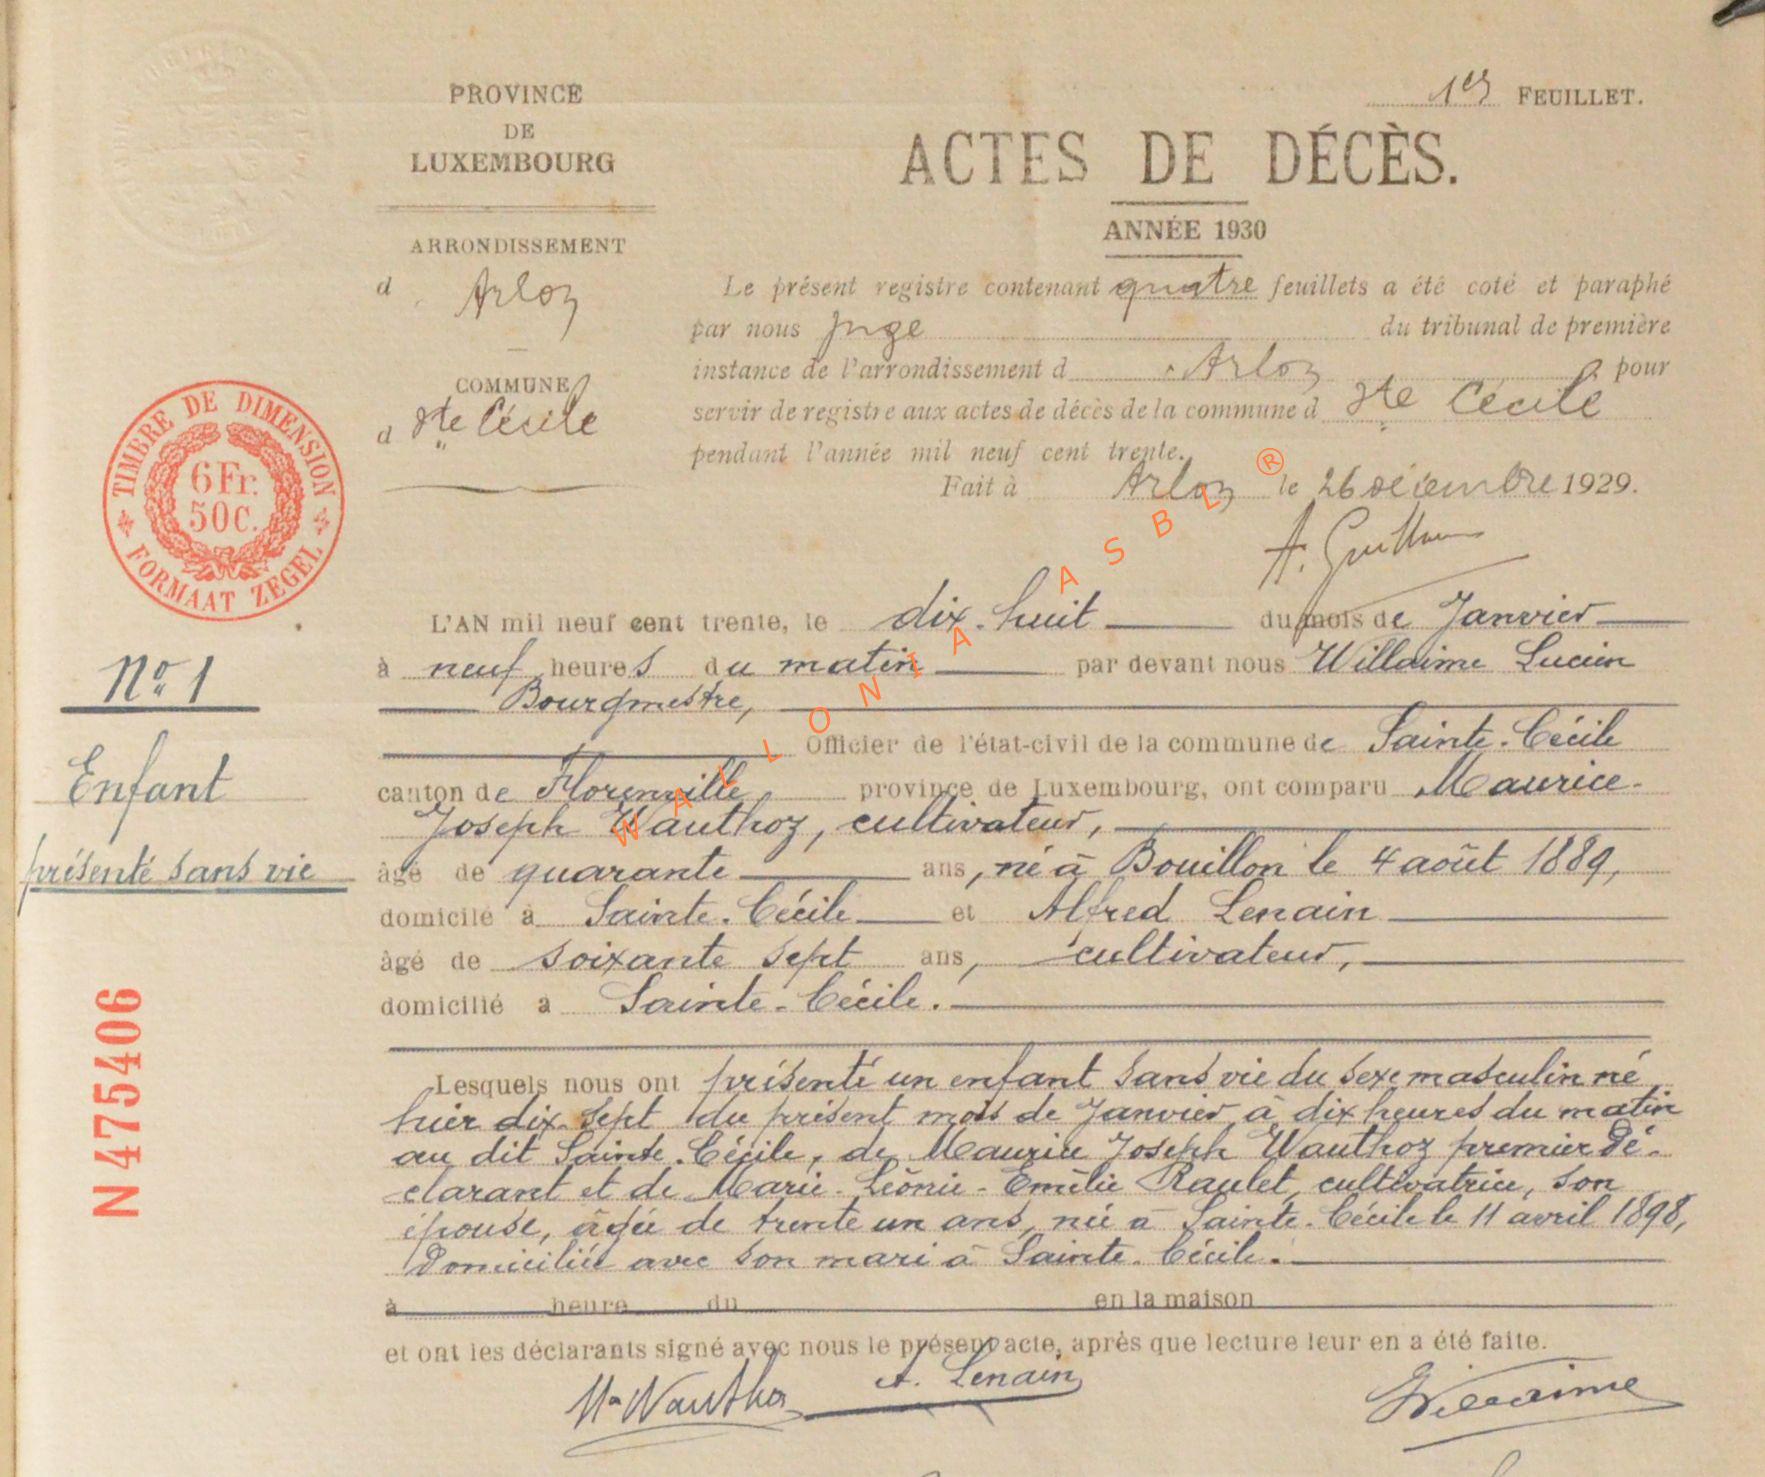 PROVINCE
DE
LUXEMBOURG
ARRONDISSEMENT
d Arlon
COMMUNE
d Ste Cécile
1er FEUILLET.
ACTES DE DÉCÈS.
ANNÉE 1930
Le présent registre contenant quatre feuillets a été coté et paraphé
par nous Juge du tribunal de première
instance de l'arrondissement d Arlon pour
servir de registre aux actes de décès de la commune d Ste Cécile
pendant l'année mil neuf cent trente.
Fait à Arlon le 26 décembre 1929.
TIMBRE DE DIMENSION
6 Fr.
50 C.
FORMAAT ZEGEL
WALLONIA ASBL ®
No. 1
Enfant
présenté sans vie
N 475406
L'AN mil neuf cent trente, le dix-huit du mois de Janvier
à neuf heures du matin par devant nous Willaime Lucien
Bourgmestre,
Officier de l'état-civil de la commune de Sainte-Cécile
canton de Florenville province de Luxembourg, ont comparu Maurice-
Joseph Wauthoz, cultivateur,
âgé de quarante ans, né à Bouillon le 4 août 1889,
domicilé à Sainte-Cécile et Alfred Lenain
âgé de soixante sept ans, cultivateur,
domicilié à Sainte-Cécile.
Lesquels nous ont présenté un enfant sans vie du sexe masculin né
hier dix-sept du présent mois de Janvier à dix heures du matin
au dit Sainte-Cécile, de Maurice Joseph Wauthoz premier dé-
clarant et de Marie-Léonie-Emélie Raulet, cultivatrice, son
épouse, âgée de trente un ans, née à Sainte-Cécile le 11 avril 1898,
domiciliée avec son mari à Sainte-Cécile.
à heure du en la maison
et ont les déclarants signé avec nous le présent acte, après que lecture leur en a été faite.
Mce Wauthoz A. Lenain Willaime